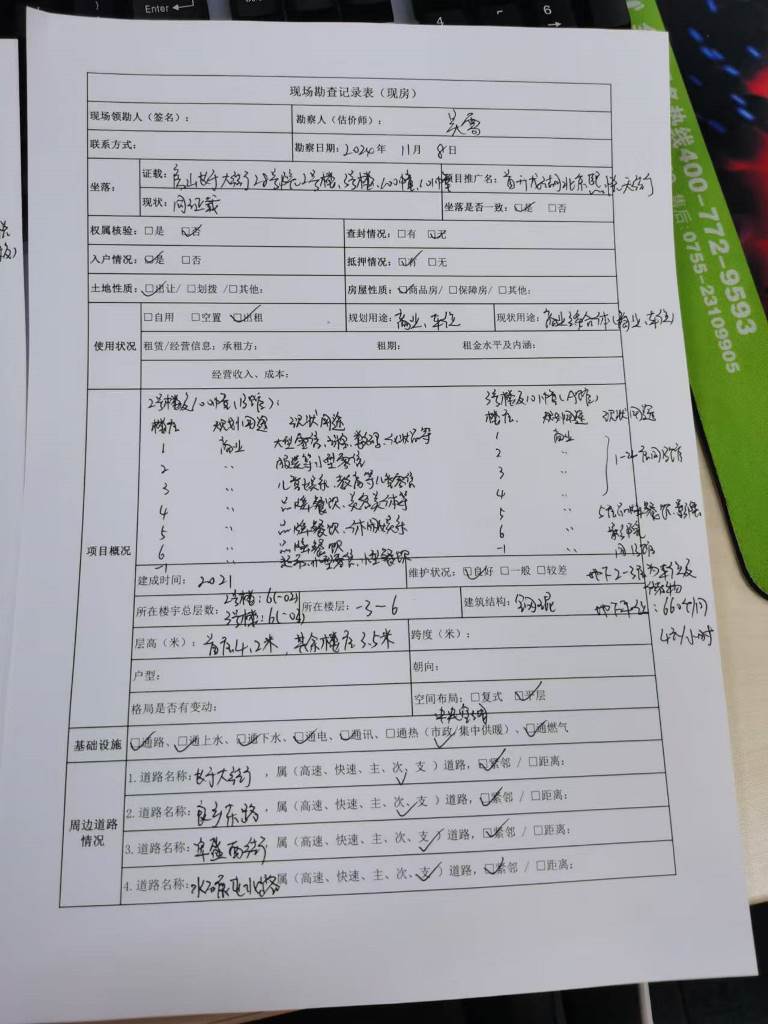 Enter
6
热线400-772-9593
售后: 0755-23109905
现场勘查记录表（现房）
现场领勘人（签名）： 勘察人（估价师）： 吴雪
联系方式： 勘察日期：2024年 11月 8日
坐落： 证载：房山长于大街28号院2号楼、3号楼、100幢、101幢 项目推广名：首开龙湖北京熙悦天街
现状：同证载 坐落是否一致：☑是 □否
权属核验：□是 ☑否 查封情况：□有 ☑无
入户情况：☑是 □否 抵押情况：☑有 □无
土地性质：☑出让/ □划拨 /□其他： 房屋性质：☑商品房/ □保障房/ □其他：
使用状况 □自用 □空置 ☑出租 规划用途：商业、车位 现状用途：商业综合体（商业、车位）
租赁/经营信息：承租方： 租期： 租金水平及内涵：
经营收入、成本：
项目概况 2号楼及100幢(B馆)： 3号楼及101幢(A馆)
楼层 规划用途 现状用途 楼层 规划用途 现状用途
1 商业 大型零售、数码、化妆品等 1 商业
2 〃 服装等小型零售 2 〃 1-4层同B馆
3 〃 儿童娱乐、教育等儿童零售 3 〃
4 〃 品牌餐饮、美容美体等 4 〃
5 〃 品牌餐饮、休闲娱乐 5 〃 5层品牌餐饮、影院
6 〃 品牌餐饮 6 〃 影院
-1 〃 超市、小型零售、小型餐饮 -1 〃 同B馆
建成时间：2021 维护状况：☑良好 □一般 □较差 地下2-3层为车位及
所在楼宇总层数：2号楼：6(-02) 3号楼：6(-03) 所在楼层：-3-6 建筑结构：钢混 地下车位：660元/月
4元/小时
层高（米）：首层4.2米，其余楼层3.5米 跨度（米）：
户型： 朝向：
格局是否有变动： 空间布局：□复式 ☑平层
中央空调
基础设施 ☑通路、☑通上水、☑通下水、☑通电、☑通讯、□通热（市政/集中供暖）、☑通燃气
周边道路情况 1.道路名称：长于大街，属（高速、快速、主、次、支）道路，☑紧邻 / □距离：
2.道路名称：良乡东路，属（高速、快速、主、次、支）道路，☑紧邻 / □距离：
3.道路名称：阜盛西街，属（高速、快速、主、次、支）道路，☑紧邻 / □距离：
4.道路名称：属（高速、快速、主、次、支）道路，☑紧邻 / □距离：